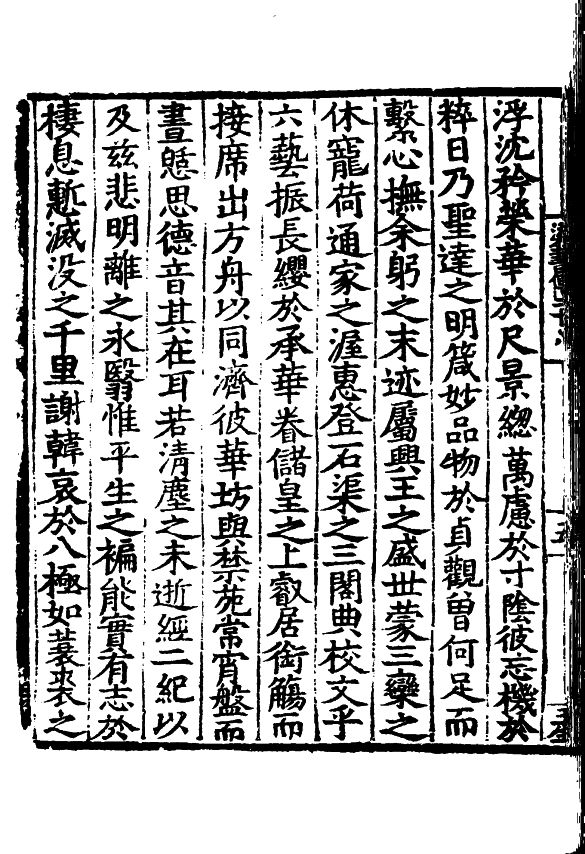 浮沈矜榮華於尺景緫萬慮於寸陰彼忘機於
粹日乃聖達之明箴妙品物於貞觀曽何足而
繫心撫余躬之末迹屬興王之盛世蒙三欒之
休寵荷通家之渥惠登石渠之三閣典校文乎
六藝振長纓於承華眷儲皇之上叡居銜觴而
接席出方舟以同濟彼華坊與禁苑常宵盤而
晝憇思德音其在耳若清塵之未逝經二紀以
及兹悲明離之永翳惟平生之褊能實有志於
棲息慙滅没之千里謝韓哀於八極如蓑裘之